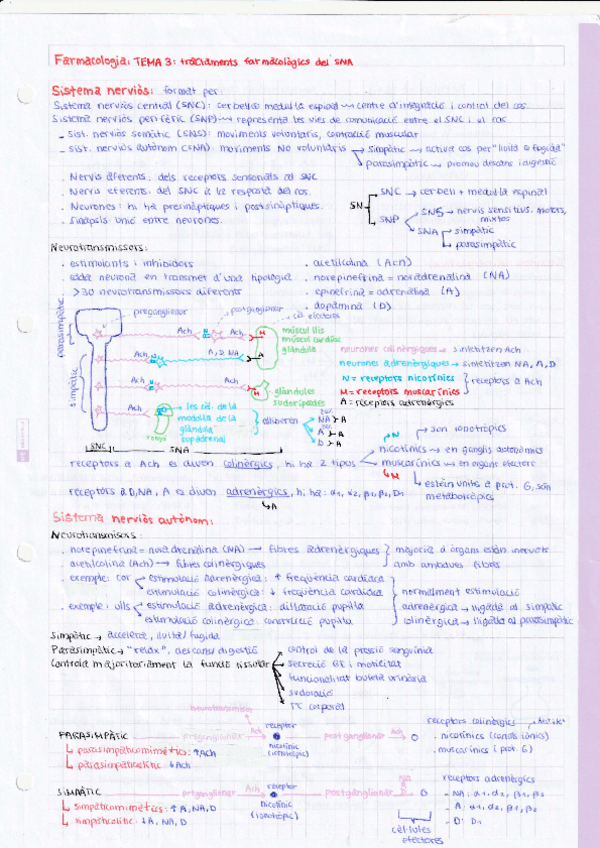 Farmacologia: TEMA 3: tractaments farmacològics del SNA
Sistema nerviòs: format per:
Sistema nerviòs central (SNC): cerbell o medul·la espinal → centre d'integració i control del cos.
Sistema nerviòs perifèric (SNP) → representa les vies de comunicació entre el SNC i el cos
- Sist. nerviòs somàtic (SNS): moviments voluntaris, contracció muscular
- Sist. nerviòs autònom (SNA): moviments NO voluntaris
simpàtic → activa cos per "lluita o fugida"
parasimpàtic → promou descans i digestió
. Nervis aferents: dels receptors sensorials al SNC
. Nervis eferents: del SNC a la resposta del cos.
. Neurones: hi ha presinàptiques i postsinàptiques.
. Sinapsis: unió entre neurones.
SN
SNC → cerbell + medul·la espinal
SNP
SNS → nervis sensitius, motors, mixtos
SNA
simpàtic
parasimpàtic
Neurotransmissors:
. estimulants i inhibidors
. cada neurona en transmet d'una tipologia
. >30 neurotransmissors diferents
. acetilcolina (Ach)
. norepinefrina = noradrenalina (NA)
. epinefrina = adrenalina (A)
. dopamina (D)
parasimpàtic
simpàtic
preganglionar
postganglionar
cèl. efectores
Ach
N
Ach
M
múscul llis
múscul cardíac
glàndula
Ach
A, D, NA
A
Ach
Ach
M
glàndules sudorípades
Ach
les cèl. de la medul·la de la glàndula suprarenal
ronyó
alliberen
NA
A
D
A
A
A
SNC
SNA
neurones colinèrgiques → sintetitzen Ach
neurones adrenèrgiques → sintetitzen NA, A, D
N = receptors nicotínics
M = receptors muscarínics
receptors a Ach
A = receptors adrenèrgics
receptors a Ach es diuen colinèrgics, hi ha 2 tipus
N
són ionotròpics
nicotínics → en ganglis autonòmics
muscarínics → en òrgans efectors
M
estàn units a prot. G, són metabotròpics
receptors a D, NA, A es diuen adrenèrgics, hi ha: α1, α2, β1, β2, D1
A
Sistema nerviòs autònom:
Neurotransmisors:
. norepinefrina = noradrenalina (NA) → fibres adrenèrgiques
. acetilcolina (Ach) → fibres colinèrgiques
majoria d'òrgans estàn inervats amb ambdues fibres
. exemple: cor
estimulació adrenèrgica: ↑ freqüència cardíaca
estimulació colinèrgica: ↓ freqüència cardíaca
. exemple: ulls
estimulació adrenèrgica: dilatació pupil·la
estimulació colinèrgica: constricció pupil·la
normalment estimulació
adrenèrgica → lligada al simpàtic
colinèrgica → lligada al parasimpàtic
Simpàtic → accelera, lluita/fugida
Parasimpàtic → "relax", descans digestió
Controla majoritàriament la funció tissular
control de la pressió sanguínia
secreció GI i motilitat
funcionalitat bufeta urinària
sudoració
Tª corporal
neurotransmisor
PARASIMPÀTIC
preganglionar
Ach
receptor
nicotínic (ionotròpic)
postganglionar
Ach
↳ parasimpaticomimètics: ↑Ach
↳ parasimpaticolític: ↓Ach
receptors colinèrgics
. nicotínics (canals iònics)
. muscarínics (prot. G)
SIMPÀTIC
preganglionar
Ach
receptor
nicotínic (ionotròpic)
postganglionar
NA
A
D
cèl·lules efectores
↳ simpaticomimètics: ↑A, NA, D
↳ simpaticolític: ↓A, NA, D
receptors adrenèrgics
- NA: α1, α2, β1, β2
- A: α1, α2, β1, β2
- D: D1